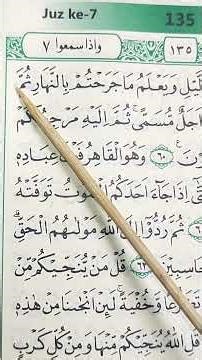 Juz ke-7
135
واذاسمعوا ٧
١٣٥
لَّيْلِ وَيَعْلَمُ مَا جَرَحْتُمْ بِالنَّهَارِ ثُمَّ
اَجَلٌ مُّسَمًّىۚ ثُمَّ اِلَيْهِ مَرْجِعُكُمْ
وْنَ ٦٠ وَهُوَ الْقَاهِرُ فَوْقَ عِبَادِهٖ
تّٰىٓ اِذَا جَاۤءَ اَحَدَكُمُ الْمَوْتُ تَوَفَّتْهُ
ثُمَّ رُدُّوْٓا اِلَى اللّٰهِ مَوْلٰىهُمُ الْحَقِّۗ
حَاسِبِيْنَ ٦٢ قُلْ مَنْ يُّنَجِّيْكُمْ مِّنْ
تَضَرُّعًا وَّخُفْيَةًۚ لَىِٕنْ اَنْجٰىنَا مِنْ هٰذِهٖ
قُلِ اللّٰهُ يُنَجِّيْكُمْ مِّنْهَا وَمِنْ كُلِّ كَرْبٍ